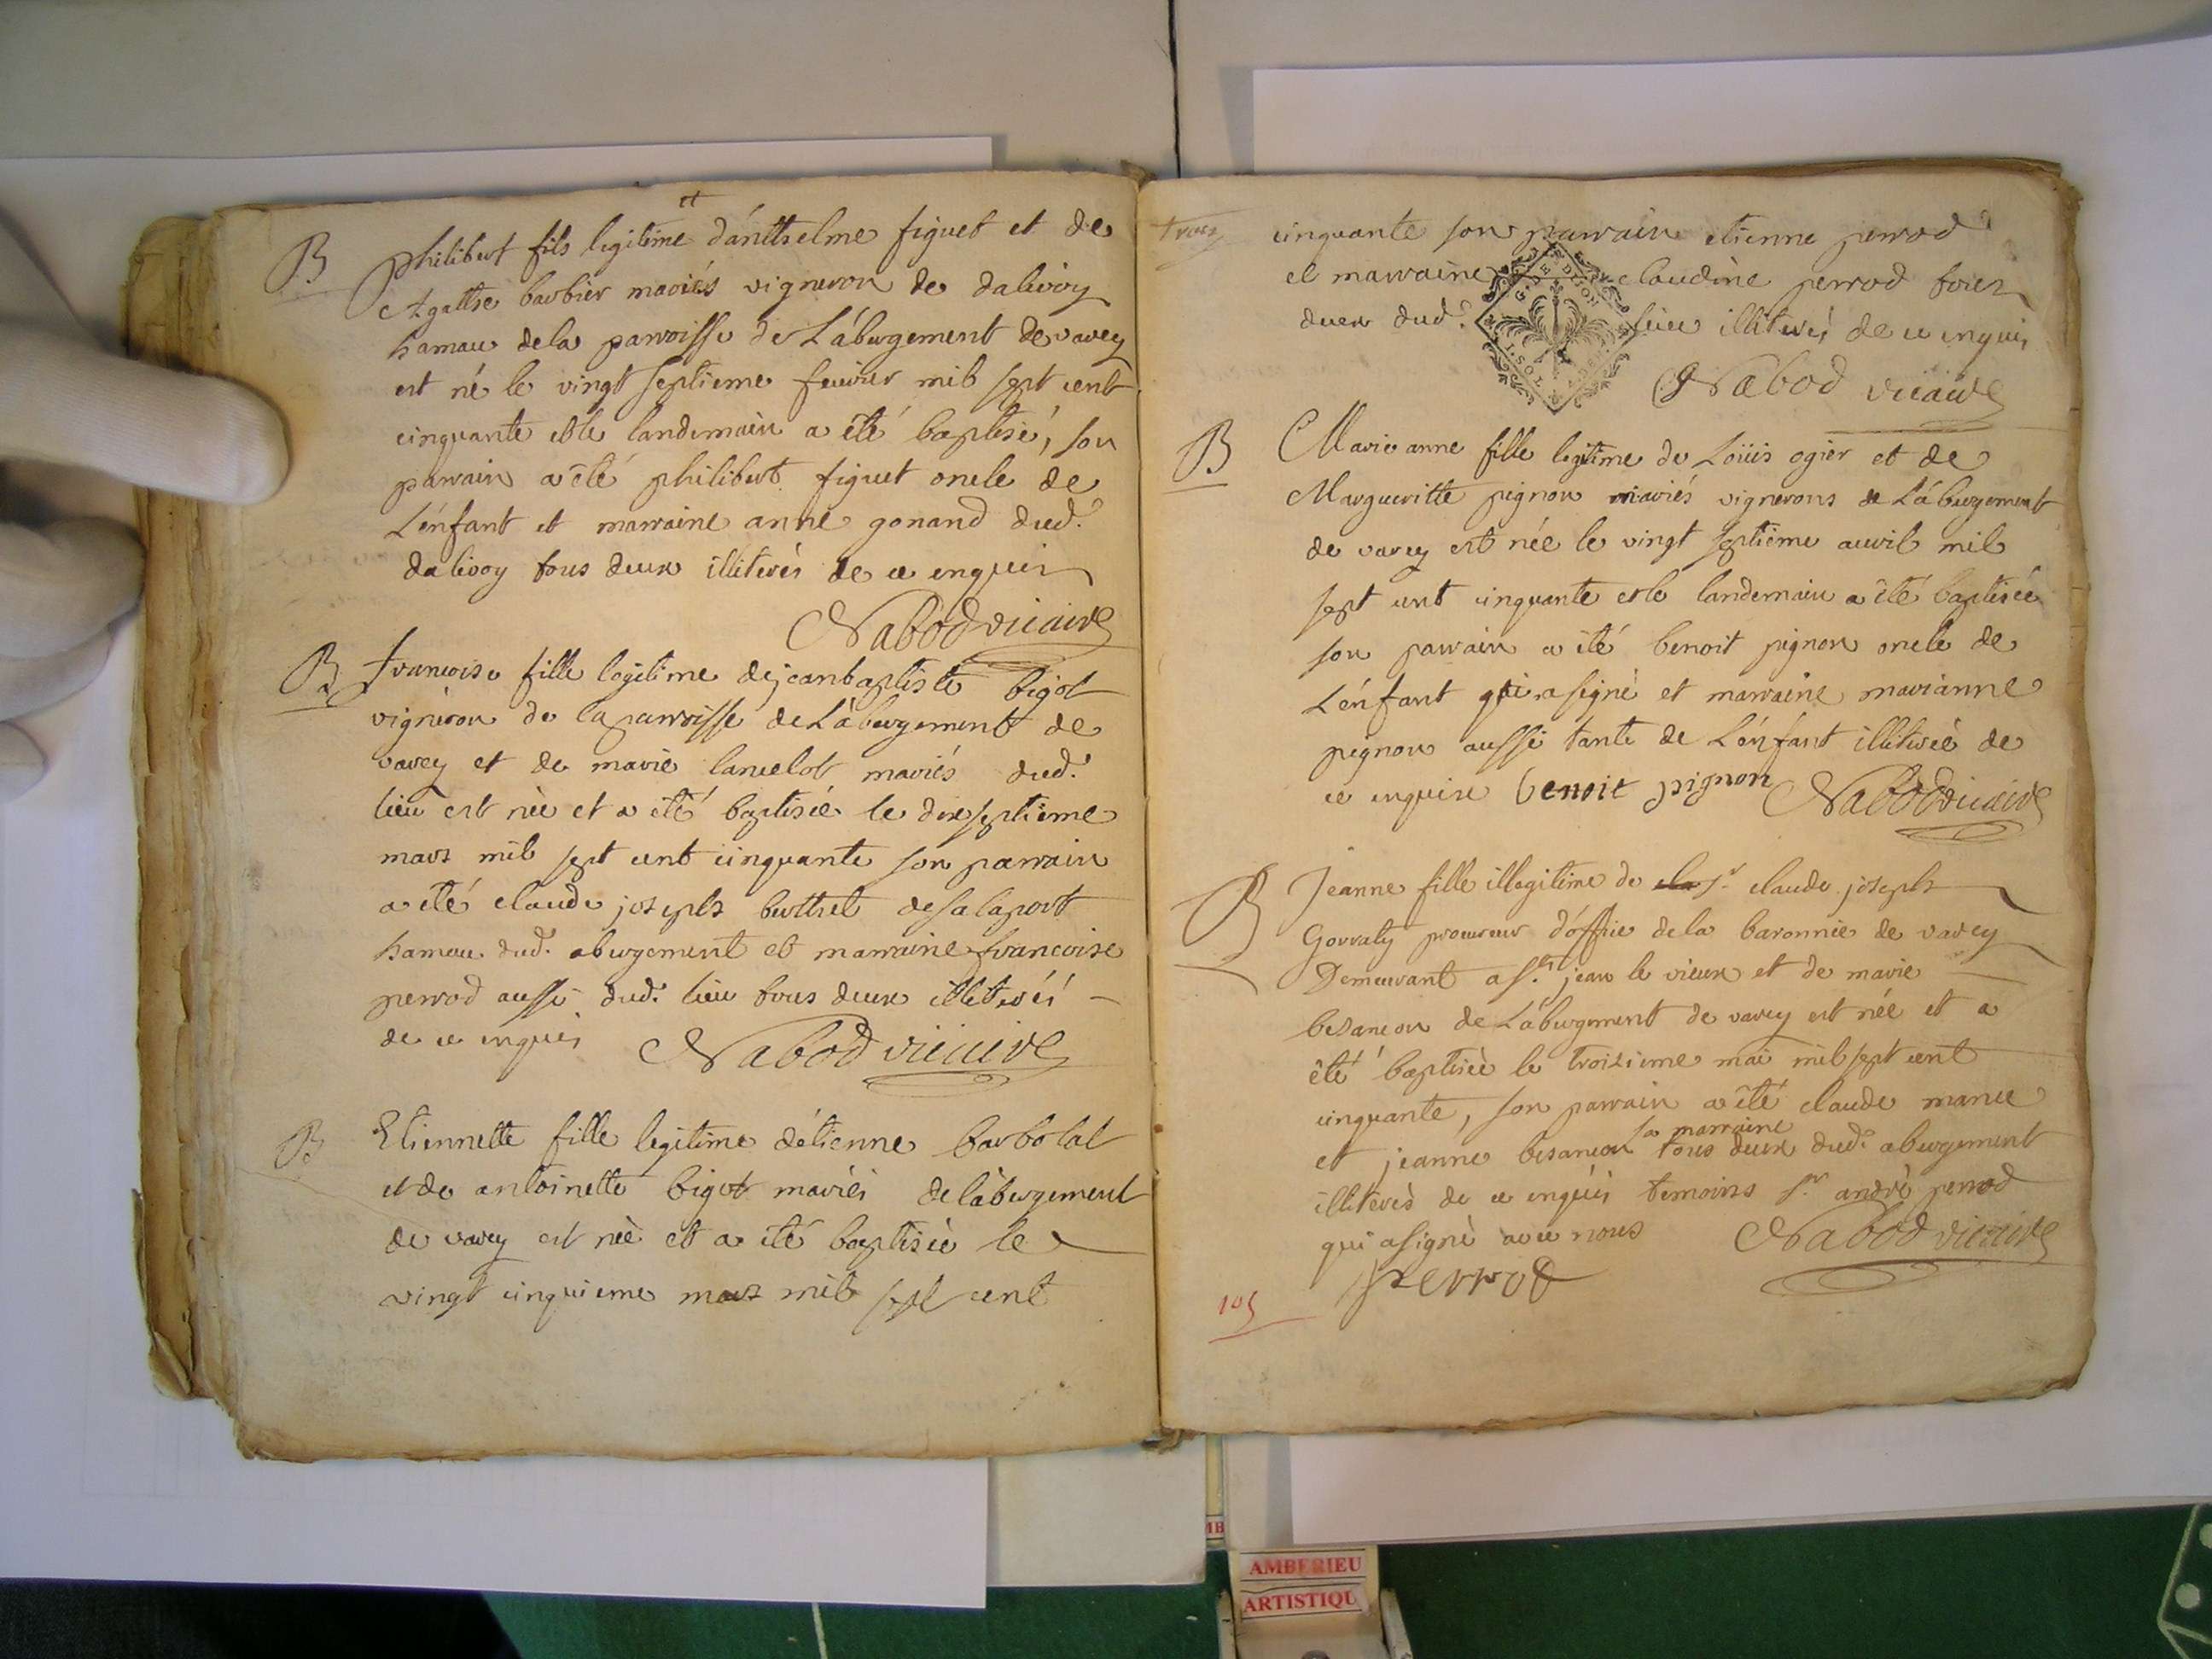 B
et
philibert fils legitime d'ánthelme figuet et de
Agathe barbier mariés vigneron de dalivoy
hamau dela parroisse de L'ábergement de varey
est né le vingt septieme feuvrier mil sept cent
cinquante et le landemain a été baptisé, son
parrain a été philibert figuet oncle de
L'énfant et marraine anne gonand dud.
dalivoy tous deux illiterés de ce enquis
Nabod vicaire
B
francoise fille legitime de jeanbaptiste bigot
vigneron de la parroisse de L'ábergement de
varey et de marie lancelot mariés dud.
lieu est née et a été baptisée le dixseptieme
mars mil sept cent cinquante son parrain
a été claude joseph berthet de salaport
hamau dud. abergement et marraine francoise
perrod aussi dud. lieu tous deux illiterés
de ce enquis Nabod vicaire
B
Etiennette fille legitime d'étienne barbolat
et de antoinette bigot mariés de l'ábergement
de varey est née et a été baptisée le
vingt cinquieme mars mil sept cent
trois
cinquante son parrain etienne perrod
et marraine claudine perrod tous
deux dud. lieu illiterés de ce enquis
GEN. DIJON
Nabod vicaire
B
Marie anne fille legitime de Loüis ogier et de
Margueritte pignon mariés vignerons de L'ábergement
de varey est née le vingt septieme auvril mil
sept cent cinquante et le landemain a été baptisée
son parrain a été benoit pignon oncle de
L'énfant qui a signé et marraine marianne
pignon aussi tante de L'énfant illiterée de
ce enquise benoit pignon Nabod vicaire
B
Jeanne fille illegitime de cla Sr. claude joseph
Gorraty procureur d'office dela baronnie de varey
Demeurant a St. jean le vieux et de marie
besancon de L'ábergement de varey est née et a
été baptisée le troisieme mai mil sept cent
cinquante, son parrain a été claude mance
sa marraine
et jeanne besancon tous deux dud. abergement
illiterés de ce enquis temoins Sr. andré perrod
qui a signé avec nous Nabod vicaire
perrod
105
AMBERIEU
ARTISTIQU